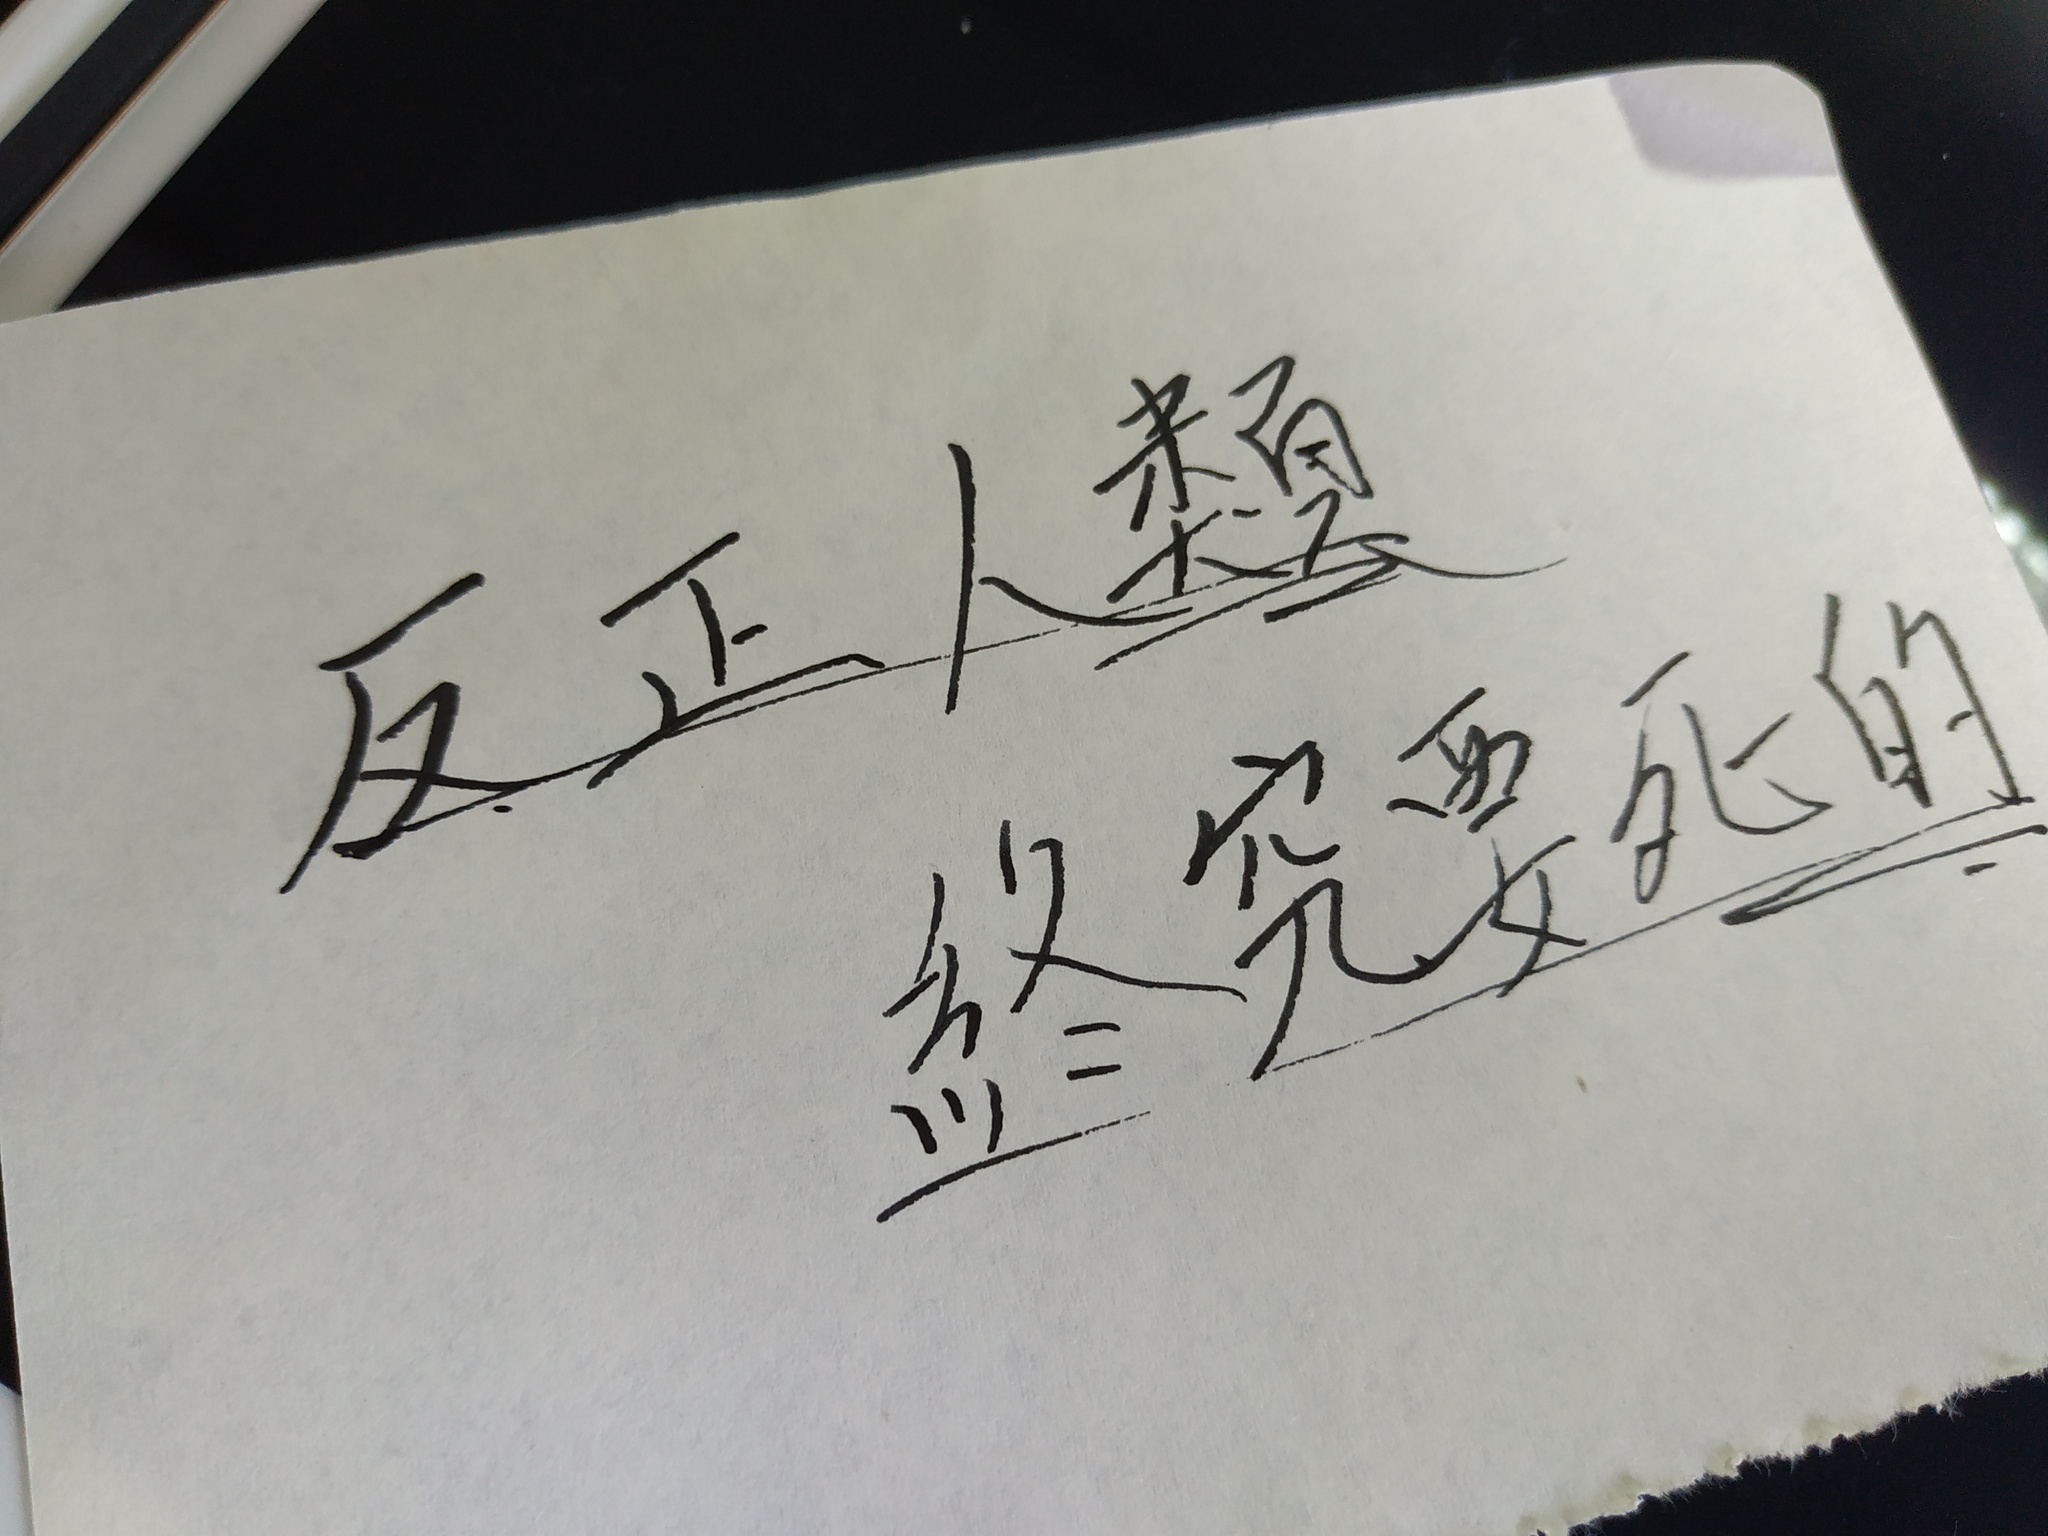 反正人類
終究要死的